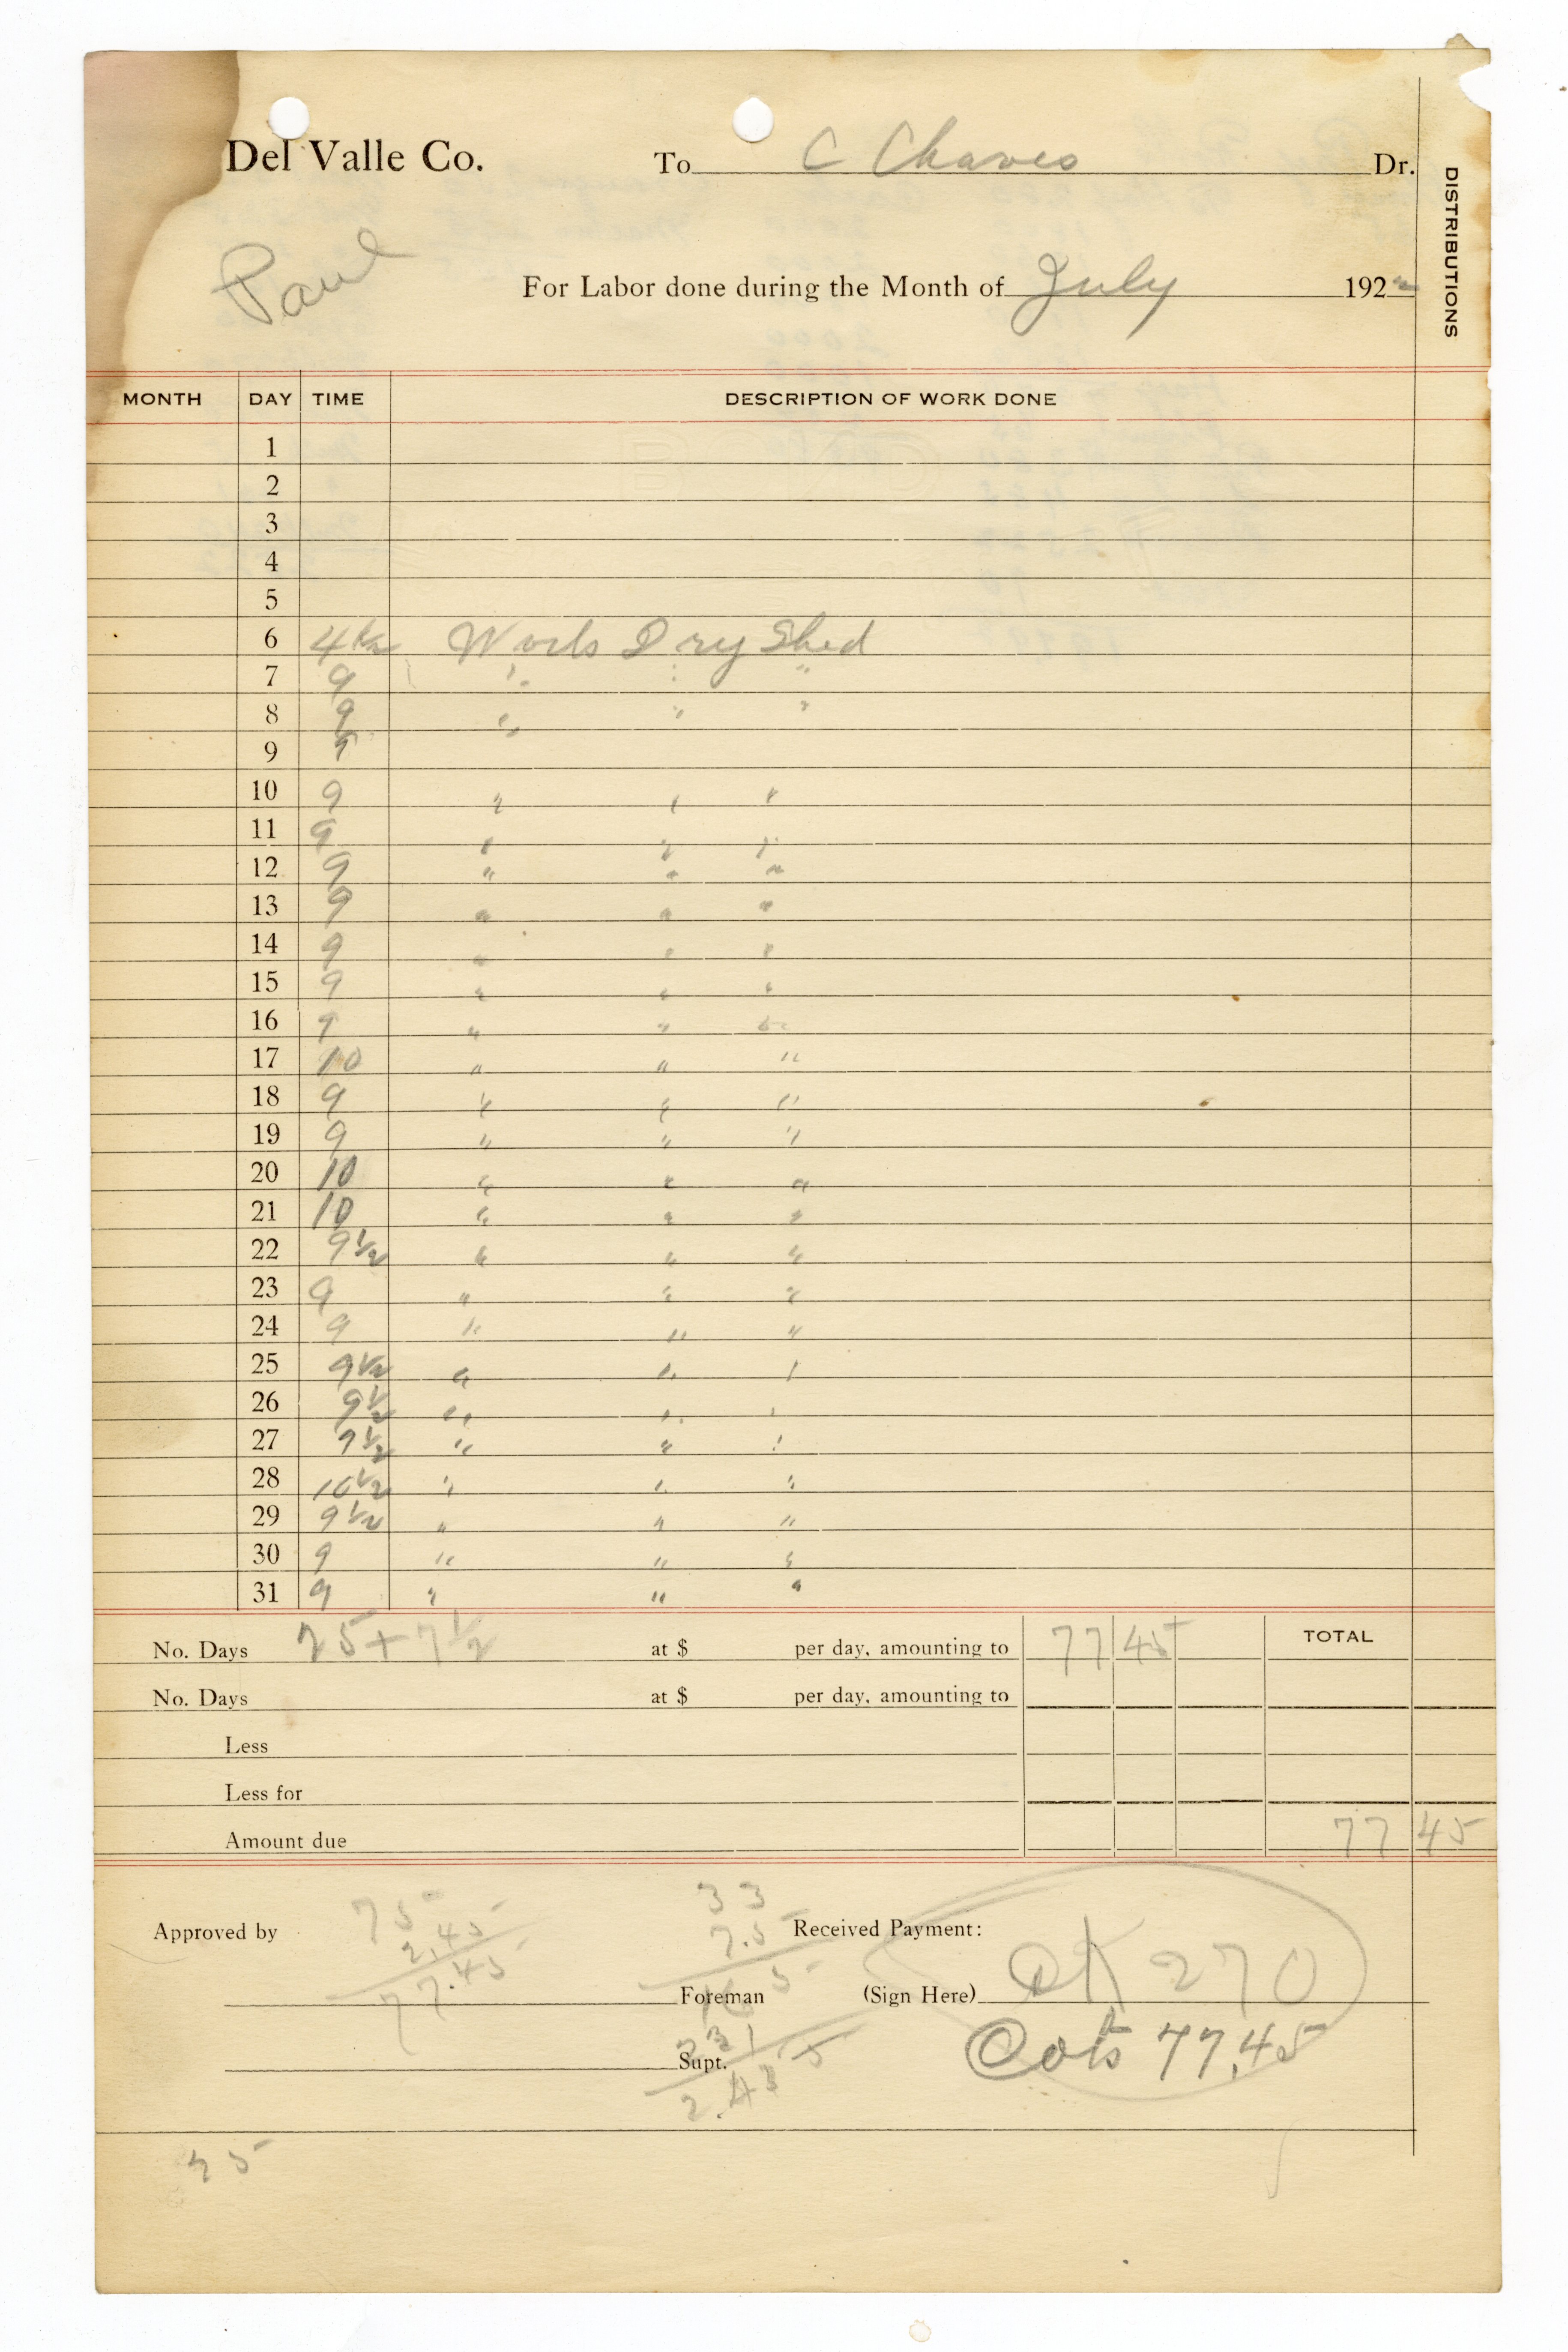 Del Valle Co. To C Chaves Dr.
DISTRIBUTIONS
Paul
For Labor done during the Month of July 1922
MONTH DAY TIME DESCRIPTION OF WORK DONE
1
2
3
4
5
6 4 1/2 Work Dry Shed
7 9 " " "
8 9 " " "
9
10 9 " " "
11 9 " " "
12 9 " " "
13 9 " " "
14 9 " " "
15 9 " " "
16 9 " " "
17 10 " " "
18 9 " " "
19 9 " " "
20 10 " " "
21 10 " " "
22 9 1/2 " " "
23 9 " " "
24 9 " " "
25 9 1/2 " " "
26 9 1/2 " " "
27 9 1/2 " " "
28 10 1/2 " " "
29 9 1/2 " " "
30 9 " " "
31 9 " " "
No. Days 25 + 7 1/2 at $ per day, amounting to 77 45 TOTAL
No. Days at $ per day, amounting to
Less
Less for
Amount due 77 45
75
2.45
77.45
33
7.5
165
231
Approved by Received Payment:
Foreman (Sign Here) CK 270
Supt. 77.45
BOND